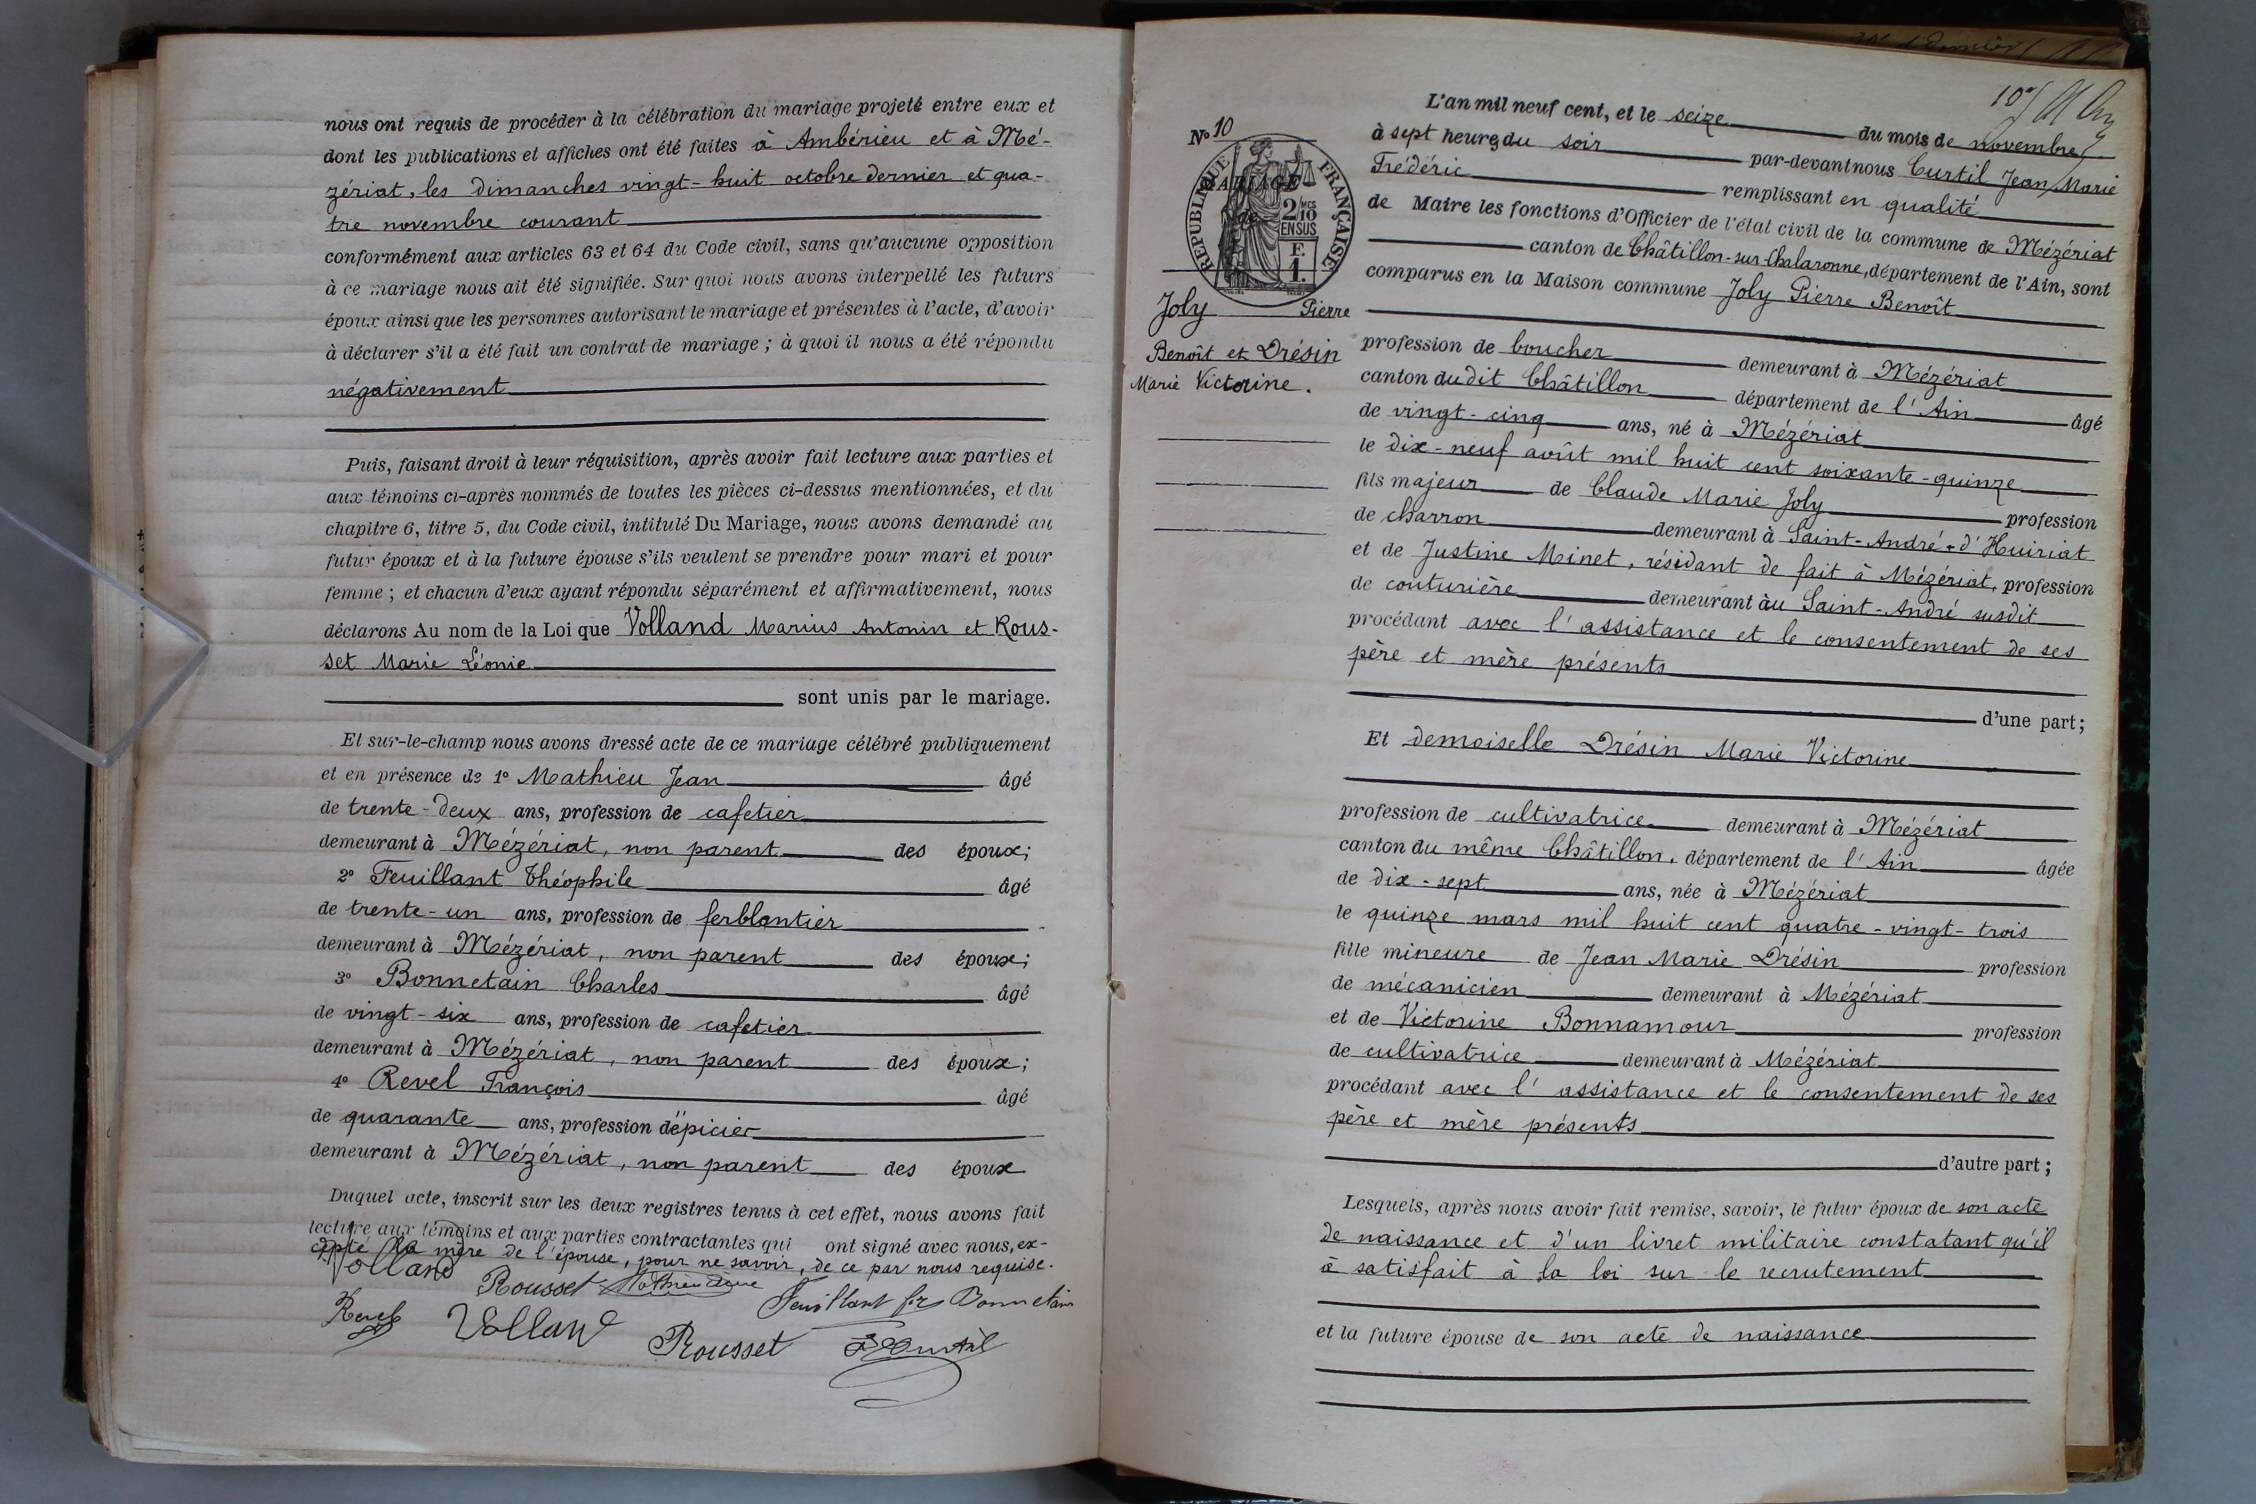 nous ont requis de procéder à la célébration du mariage projeté entre eux et
dont les publications et affiches ont été faites à Ambérieu et à Mé-
zériat, les dimanches vingt-huit octobre dernier et qua-
tre novembre courant
conformément aux articles 63 et 64 du Code civil, sans qu'aucune opposition
à ce mariage nous ait été signifiée. Sur quoi nous avons interpellé les futurs
époux ainsi que les personnes autorisant le mariage et présentes à l'acte, d'avoir
à déclarer s'il a été fait un contrat de mariage ; à quoi il nous a été répondu
négativement
Puis, faisant droit à leur réquisition, après avoir fait lecture aux parties et
aux témoins ci-après nommés de toutes les pièces ci-dessus mentionnées, et du
chapitre 6, titre 5, du Code civil, intitulé Du Mariage, nous avons demandé au
futur époux et à la future épouse s'ils veulent se prendre pour mari et pour
femme ; et chacun d'eux ayant répondu séparément et affirmativement, nous
déclarons Au nom de la Loi que Volland Marius Antonin et Rous-
set Marie Léonie
sont unis par le mariage.
Et sur-le-champ nous avons dressé acte de ce mariage célébré publiquement
et en présence de 1° Mathieu Jean âgé
de trente-deux ans, profession de cafetier
demeurant à Mézériat, non parent des époux;
2° Feuillant Théophile âgé
de trente-un ans, profession de ferblantier
demeurant à Mézériat, non parent des époux;
3° Bonnetain Charles âgé
de vingt-six ans, profession de cafetier
demeurant à Mézériat, non parent des époux;
4° Revel François âgé
de quarante ans, profession d'épicier
demeurant à Mézériat, non parent des époux
Duquel acte, inscrit sur les deux registres tenus à cet effet, nous avons fait
lecture aux témoins et aux parties contractantes qui ont signé avec nous, ex-
cepté la mère de l'épouse, pour ne savoir, de ce par nous requise.
Volland Rousset Mathieu Feuillant Bonnetain
Revel Volland Rousset Curtil
N° 10
MARIAGE
de
RÉPUBLIQUE FRANÇAISE
2/10 MES
EN SUS
F.
1.
Joly Pierre
Benoît et Drésin
Marie Victorine.
10
L'an mil neuf cent, et le seize du mois de novembre
à sept heures du soir par-devant nous Curtil Jean Marie
Frédéric remplissant en qualité
de Maire les fonctions d'Officier de l'état civil de la commune de Mézériat
canton de Châtillon-sur-Chalaronne, département de l'Ain, sont
comparus en la Maison commune Joly Pierre Benoît
profession de boucher demeurant à Mézériat
canton dudit Châtillon département de l'Ain âgé
de vingt-cinq ans, né à Mézériat
le dix-neuf août mil huit cent soixante-quinze
fils majeur de Claude Marie Joly profession
de charron demeurant à Saint-André-d'Huiriat
et de Justine Minet, résidant de fait à Mézériat, profession
de couturière demeurant àu Saint-André susdit
procédant avec l'assistance et le consentement de ses
père et mère présents
d'une part;
Et demoiselle Drésin Marie Victorine
profession de cultivatrice demeurant à Mézériat
canton du même Châtillon, département de l'Ain âgée
de dix-sept ans, née à Mézériat
le quinze mars mil huit cent quatre-vingt-trois
fille mineure de Jean Marie Drésin profession
de mécanicien demeurant à Mézériat
et de Victorine Bonnamour profession
de cultivatrice demeurant à Mézériat
procédant avec l'assistance et le consentement de ses
père et mère présents
d'autre part;
Lesquels, après nous avoir fait remise, savoir, le futur époux de son acte
de naissance et d'un livret militaire constatant qu'il
a satisfait à la loi sur le recrutement
et la future épouse de son acte de naissance